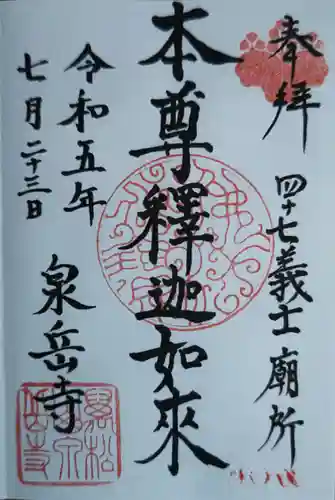 奉拝
四十七義士廟所
本尊釋迦如來
令和五年
七月二十三日
泉岳寺
萬松
泉岳寺